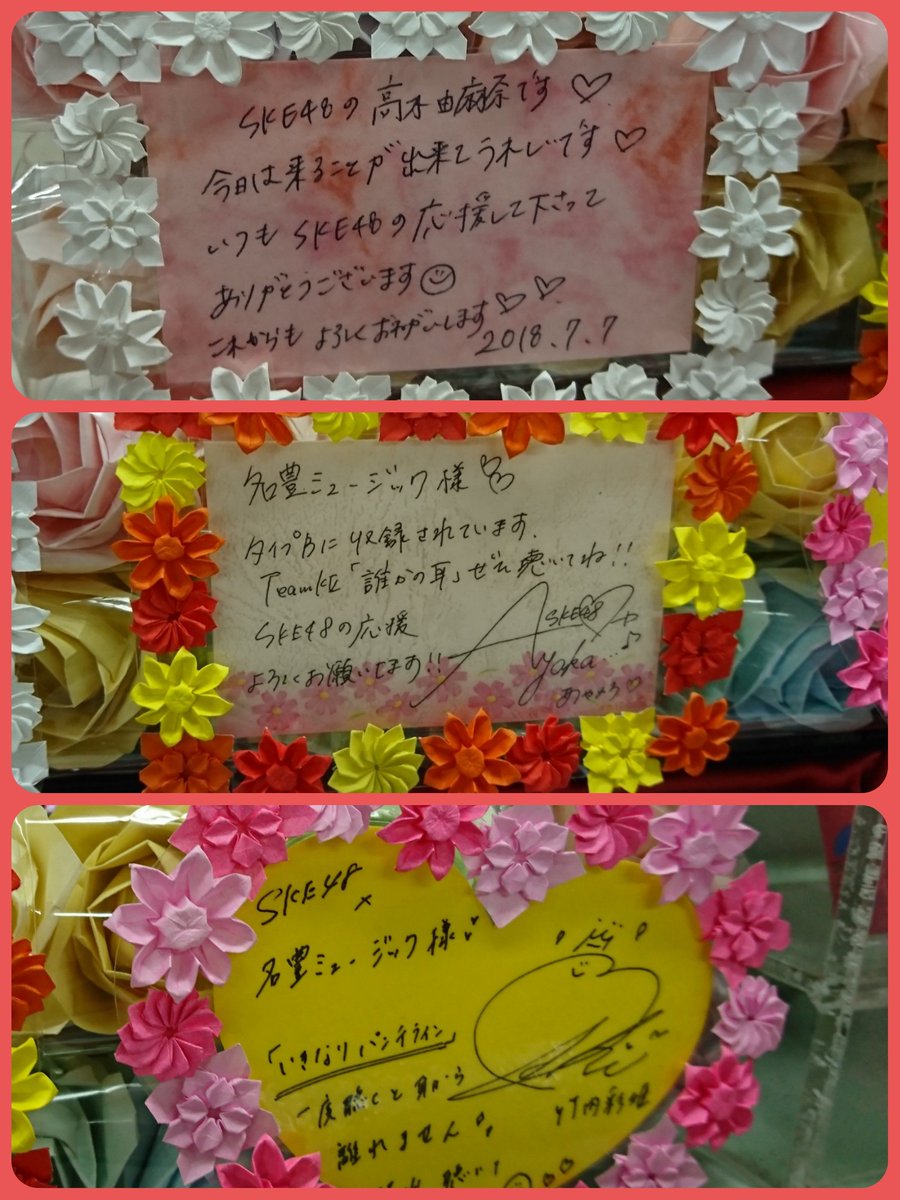 SKE48の 高木由麻奈です♡
今日は来ることが出来てうれしいです♡
いつも SKE48の応援して下さって
ありがとうございます
これからも よろしくおねがいします♡♡
2018.7.7
名豊ミュージック様
タイプBに収録されています。
TeamKⅡ「誰かの耳」ぜひ聴いてね!!
SKE48の応援
よろしくお願いします!!
SKE48
Ayaka...♪
SKE48
×
名豊ミュージック様
「いきなりパンチライン」
一度聴くと耳から
離れません
竹内彩姫